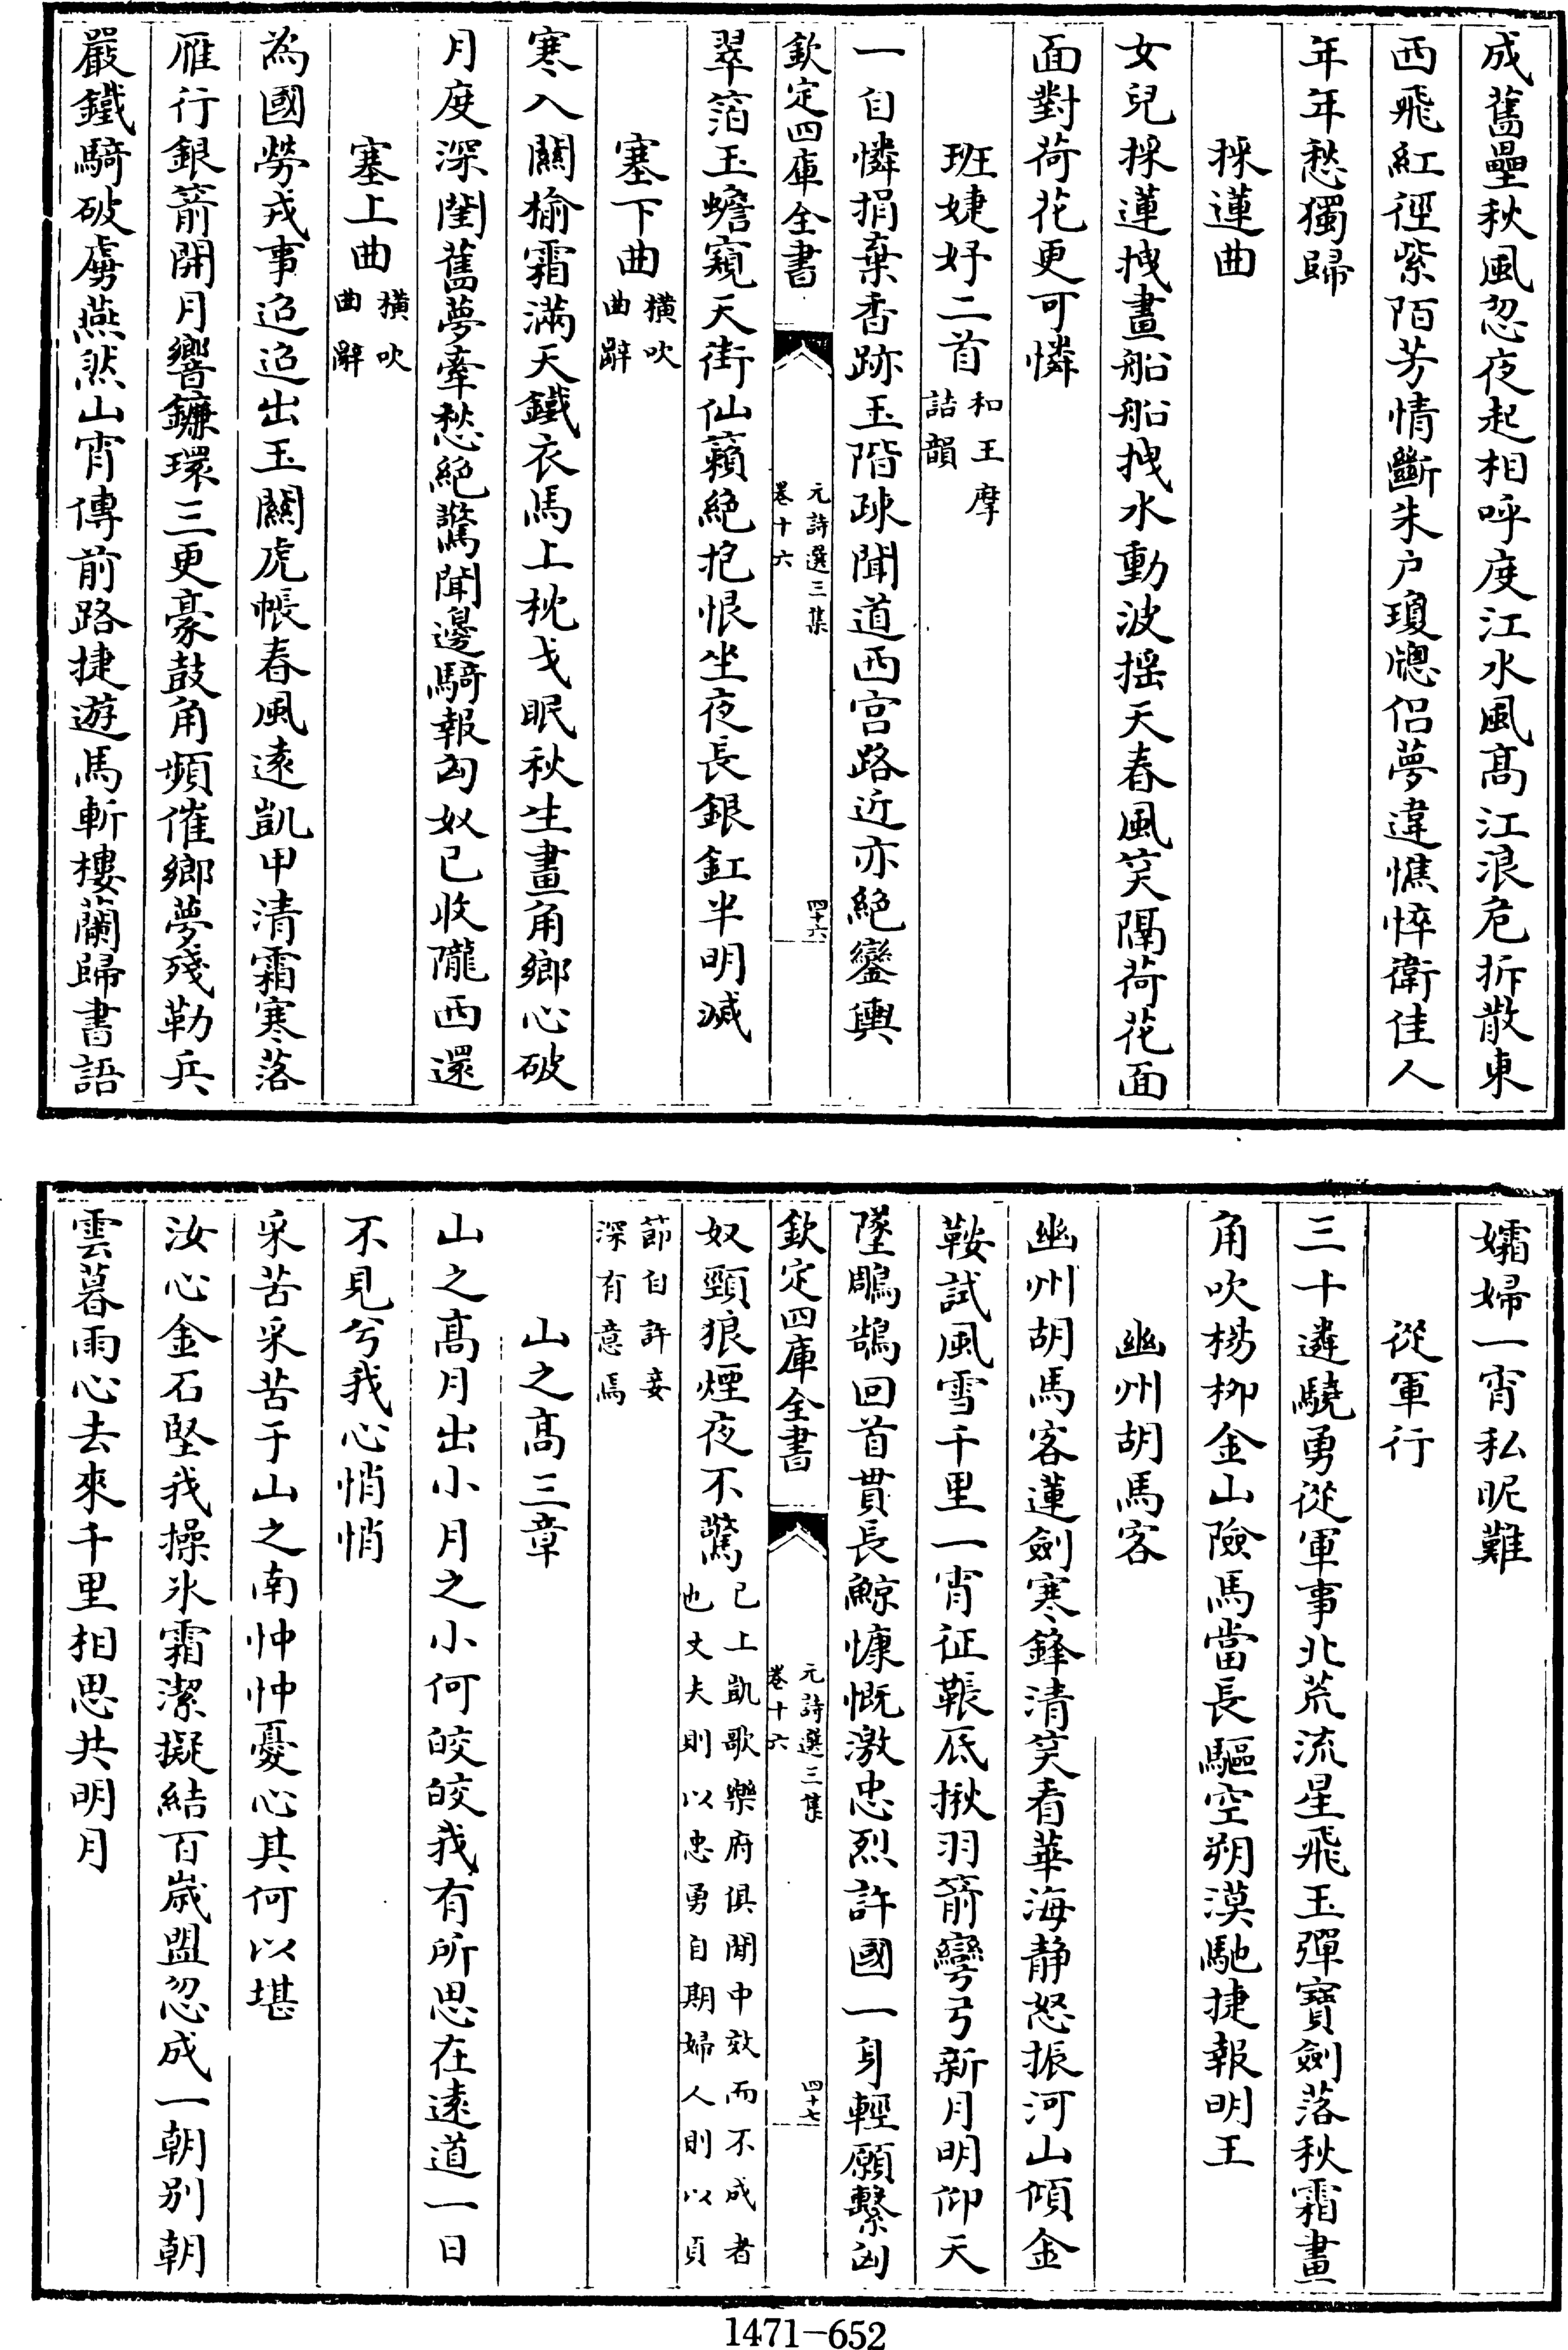 成舊壘秋風忽夜起相呼度江水風髙江浪危拆散東
西飛紅徑紫陌芳情斷朱户瓊牕侣夢違憔悴衛佳人
年年愁獨歸
採蓮曲
女兒採蓮拽畫船船拽水動波揺天春風笑隔荷花面
面對荷花更可憐
班婕妤二首和王摩
詰韻
一自憐捐棄香跡玉階疎聞道西宫路近亦絶鑾輿
欽定四庫全書
元詩選三集
卷十六
四十六
翠箔玉蟾窺天街仙籟絶抱恨坐夜長銀釭半明滅
塞下曲橫吹
曲辭
寒入關榆霜滿天鐵衣馬上枕戈眠秋生畫角鄉心破
月度深閨舊夢牽愁絶驚聞邊騎報匈奴已收隴西還
塞上曲橫吹
曲辭
為國勞戎事迢迢出玉關虎帳春風逺凱甲清霜寒落
雁行銀箭開月響鐮環三更豪鼓角頻催鄉夢殘勒兵
嚴鐵騎破虜燕然山宵傳前路捷遊馬斬樓蘭歸書語
孀婦一宵私昵難
從軍行
三十遴驍勇從軍事北荒流星飛玉彈寶劍落秋霜畫
角吹楊栁金山險馬當長驅空朔漠馳捷報明王
幽州胡馬客
幽州胡馬客蓮劍寒鋒清笑看華海静怒振河山傾金
鞍試風雪千里一宵征韔底揪羽箭彎弓新月明仰天
墜鵰鵠回首貫長鯨慷慨激忠烈許國一身輕願繫匈
欽定四庫全書
元詩選三集
卷十六
四十七
奴頸狼煙夜不驚已上凱歌樂府俱閨中效而不成者
也丈夫則以忠勇自期婦人則以貞
節自許妾
深有意焉
山之髙三章
山之髙月出小月之小何皎皎我有所思在逺道一日
不見兮我心悄悄
采苦采苦于山之南忡忡憂心其何以堪
汝心金石堅我操氷霜潔擬結百歲盟忽成一朝别朝
雲暮雨心去來千里相思共明月
1471-652